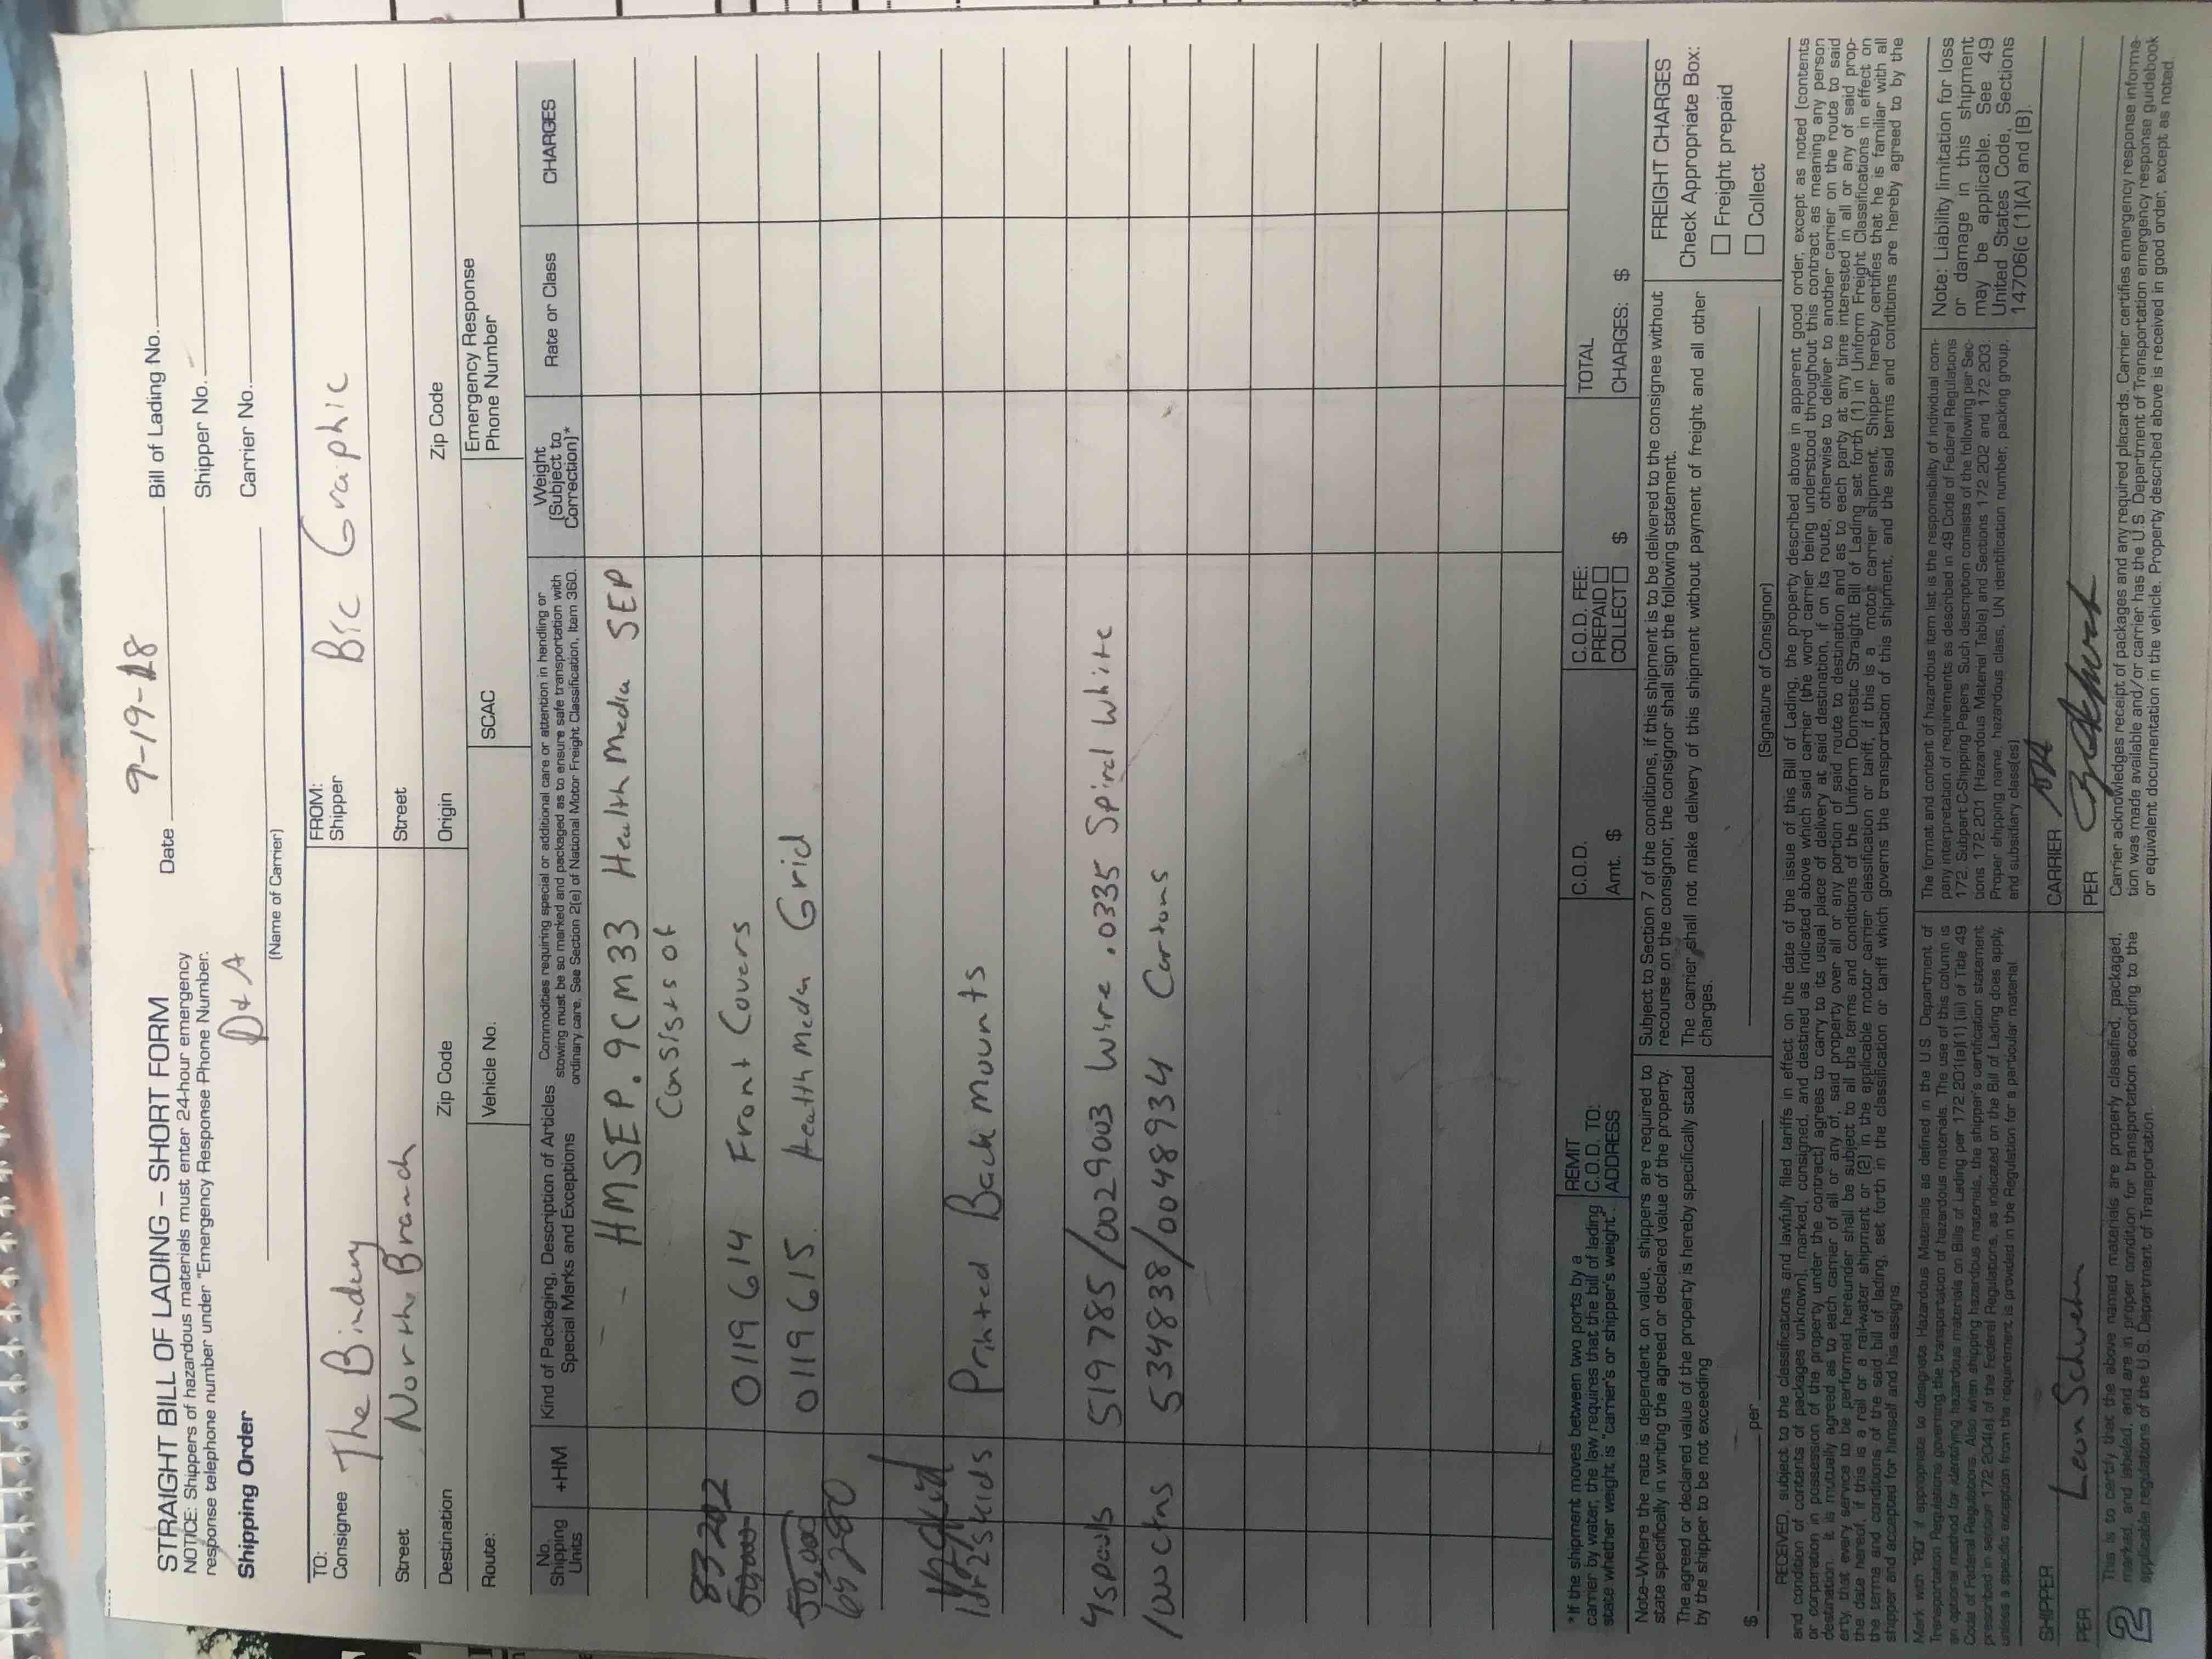 STRAIGHT BILL OF LADING – SHORT FORM
NOTICE: Shippers of hazardous materials must enter 24-hour emergency
response telephone number under "Emergency Response Phone Number.
Shipping Order
D+A
(Name of Carrier)
Date 9-19-18
Bill of Lading No.
Shipper No.
Carrier No.
TO:
Consignee The Bindery
Street North Branch
Destination
Zip Code
FROM:
Shipper Bic Graphic
Street
Origin
Zip Code
Route:
Vehicle No.
SCAC
Emergency Response
Phone Number
No.
Shipping
Units
+HM
Kind of Packaging, Description of Articles
Special Marks and Exceptions
Commodities requiring special or additional care or attention in handling or
stowing must be so marked and packaged as to ensure safe transportation with
ordinary care. See Section 2(e) of National Motor Freight Classification, Item 360.
Weight
(Subject to
Correction)*
Rate or Class
CHARGES
HMSEP.9CM33 Health Media SEP
Consists of
83202
50,000
0119614 Front Covers
50,000
0119615 Health Media Grid
65280
1 or 2 skids Printed Back mounts
4 spools 519785/0029003 Wire .0335 Spiral White
1000 ctns 534838/0048934 Cartons
*If the shipment moves between two ports by a
carrier by water, the law requires that the bill of lading
state whether weight is "carrier's or shipper's weight".
REMIT
C.O.D. TO:
ADDRESS
C.O.D.
Amt. $
C.O.D. FEE:
PREPAID
COLLECT $
TOTAL
CHARGES: $
Note–Where the rate is dependent on value, shippers are required to
state specifically in writing the agreed or declared value of the property.
The agreed or declared value of the property is hereby specifically stated
by the shipper to be not exceeding
$ per
Subject to Section 7 of the conditions, if this shipment is to be delivered to the consignee without
recourse on the consignor, the consignor shall sign the following statement.
The carrier shall not make delivery of this shipment without payment of freight and all other
charges.
(Signature of Consignor)
FREIGHT CHARGES
Check Appropriate Box:
Freight prepaid
Collect
RECEIVED, subject to the classifications and lawfully filed tariffs in effect on the date of the issue of this Bill of Lading, the property described above in apparent good order, except as noted (contents
and condition of contents of packages unknown), marked, consigned, and destined as indicated above which said carrier (the word carrier being understood throughout this contract as meaning any person
or corporation in possession of the property under the contract) agrees to carry to its usual place of delivery at said destination, if on its route, otherwise to deliver to another carrier on the route to said
destination. It is mutually agreed as to each carrier of all or any of, said property over all or any portion of said route to destination and as to each party at any time interested in all or any of said prop-
erty, that every service to be performed hereunder shall be subject to all the terms and conditions of the Uniform Domestic Straight Bill of Lading set forth (1) in Uniform Freight Classifications in effect on
the date hereof, if this is a rail or a rail-water shipment or (2) in the applicable motor carrier classification or tariff, if this is a motor carrier shipment. Shipper hereby certifies that he is familiar with all
the terms and conditions of the said bill of lading, set forth in the classification or tariff which governs the transportation of this shipment, and the said terms and conditions are hereby agreed to by the
shipper and accepted for himself and his assigns.
Mark with "RQ" if appropriate to designate Hazardous Materials as defined in the U.S. Department of
Transportation Regulations governing the transportation of hazardous materials. The use of this column is
an optional method for identifying hazardous materials on Bills of Lading per 172.201(a)(1)(iii) of Title 49
Code of Federal Regulations. Also when shipping hazardous materials, the shipper's certification statement
prescribed in section 172.204(a) of the Federal Regulations, as indicated on the Bill of Lading does apply,
unless a specific exception from the requirement is provided in the Regulation for a particular material.
The format and content of hazardous item list is the responsibility of individual com-
pany interpretation of requirements as described in 49 Code of Federal Regulations
172. Subpart C-Shipping Papers. Such description consists of the following per Sec-
tions 172.201 (Hazardous Material Table) and Sections 172.202 and 172.203:
Proper shipping name, hazardous class, UN identification number, packing group,
and subsidiary class(es)
Note: Liability limitation for loss
or damage in this shipment
may be applicable. See 49
United States Code, Sections
14706(c (1)(A) and (B).
SHIPPER
PER
CARRIER
PER
2
This is to certify that the above named materials are properly classified, packaged,
marked, and labeled, and are in proper condition for transportation according to the
applicable regulations of the U.S. Department of Transportation.
Carrier acknowledges receipt of packages and any required placards. Carrier certifies emergency response informa-
tion was made available and/or carrier has the U.S. Department of Transportation emergency response guidebook
or equivalent documentation in the vehicle. Property described above is received in good order, except as noted.